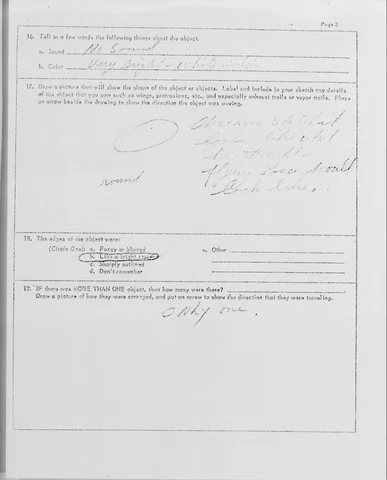 Page 3
16. Tell in a few words the following things about the object.
a. Sound No Sound
b. Color Very Bright - white
17. Draw a picture that will show the shape of the object or objects. Label and include in your sketch any details
of the object that you saw such as wings, protrusions, etc., and especially exhaust trails or vapor trails. Place
an arrow beside the drawing to show the direction the object was moving.
looks like what
flying saucer would
look like.
round
18. The edges of the object were:
(Circle One): a. Fuzzy or blurred
b. Like a bright star
c. Sharply outlined
d. Don't remember
e. Other
19. IF there was MORE THAN ONE object, then how many were there?
Draw a picture of how they were arranged, and put an arrow to show the direction that they were traveling.
Only one.